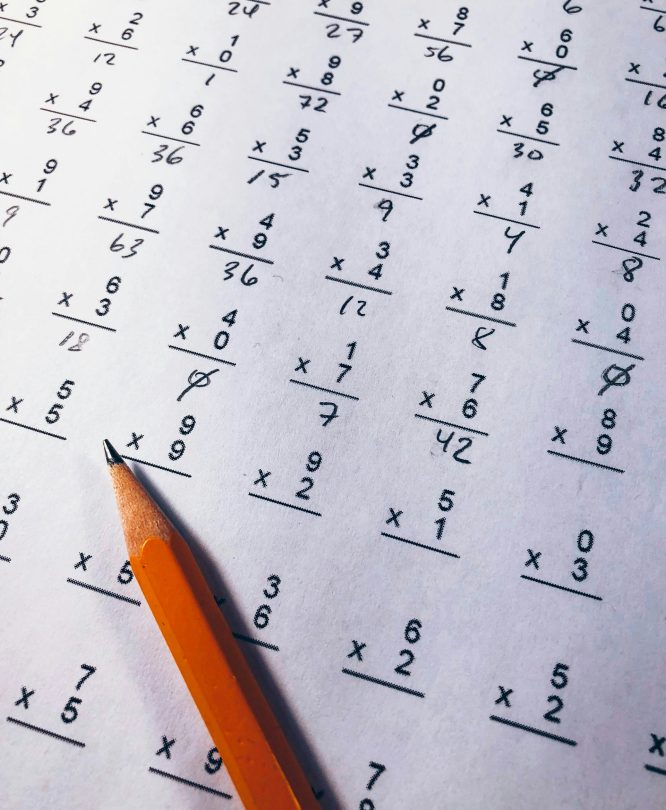 6
24 x 9 8 6 x
27 x 7 x 0
56 0 16
x 3 2 1 9 0 6 8
24 x 6 x 0 x 8 x 2 x 5 x 4
12 1 72 0 30 32
9 6 5 3 4 2
x 4 x 6 x 3 x 3 x 1 x 4
36 36 15 9 4 8
9 9 4 3 1 0
x 1 x 7 x 9 x 4 x 8 x 4
9 63 36 12 8 0
0 6 4 1 7 8
x 3 x 0 x 7 x 6 x 9
18 0 7 42
5 9 9 5 0
x 5 x 9 x 2 x 1 x 3
3 3 6 5
0 x 5 6 x 2 x 2 x
7 7
x 5 x 9